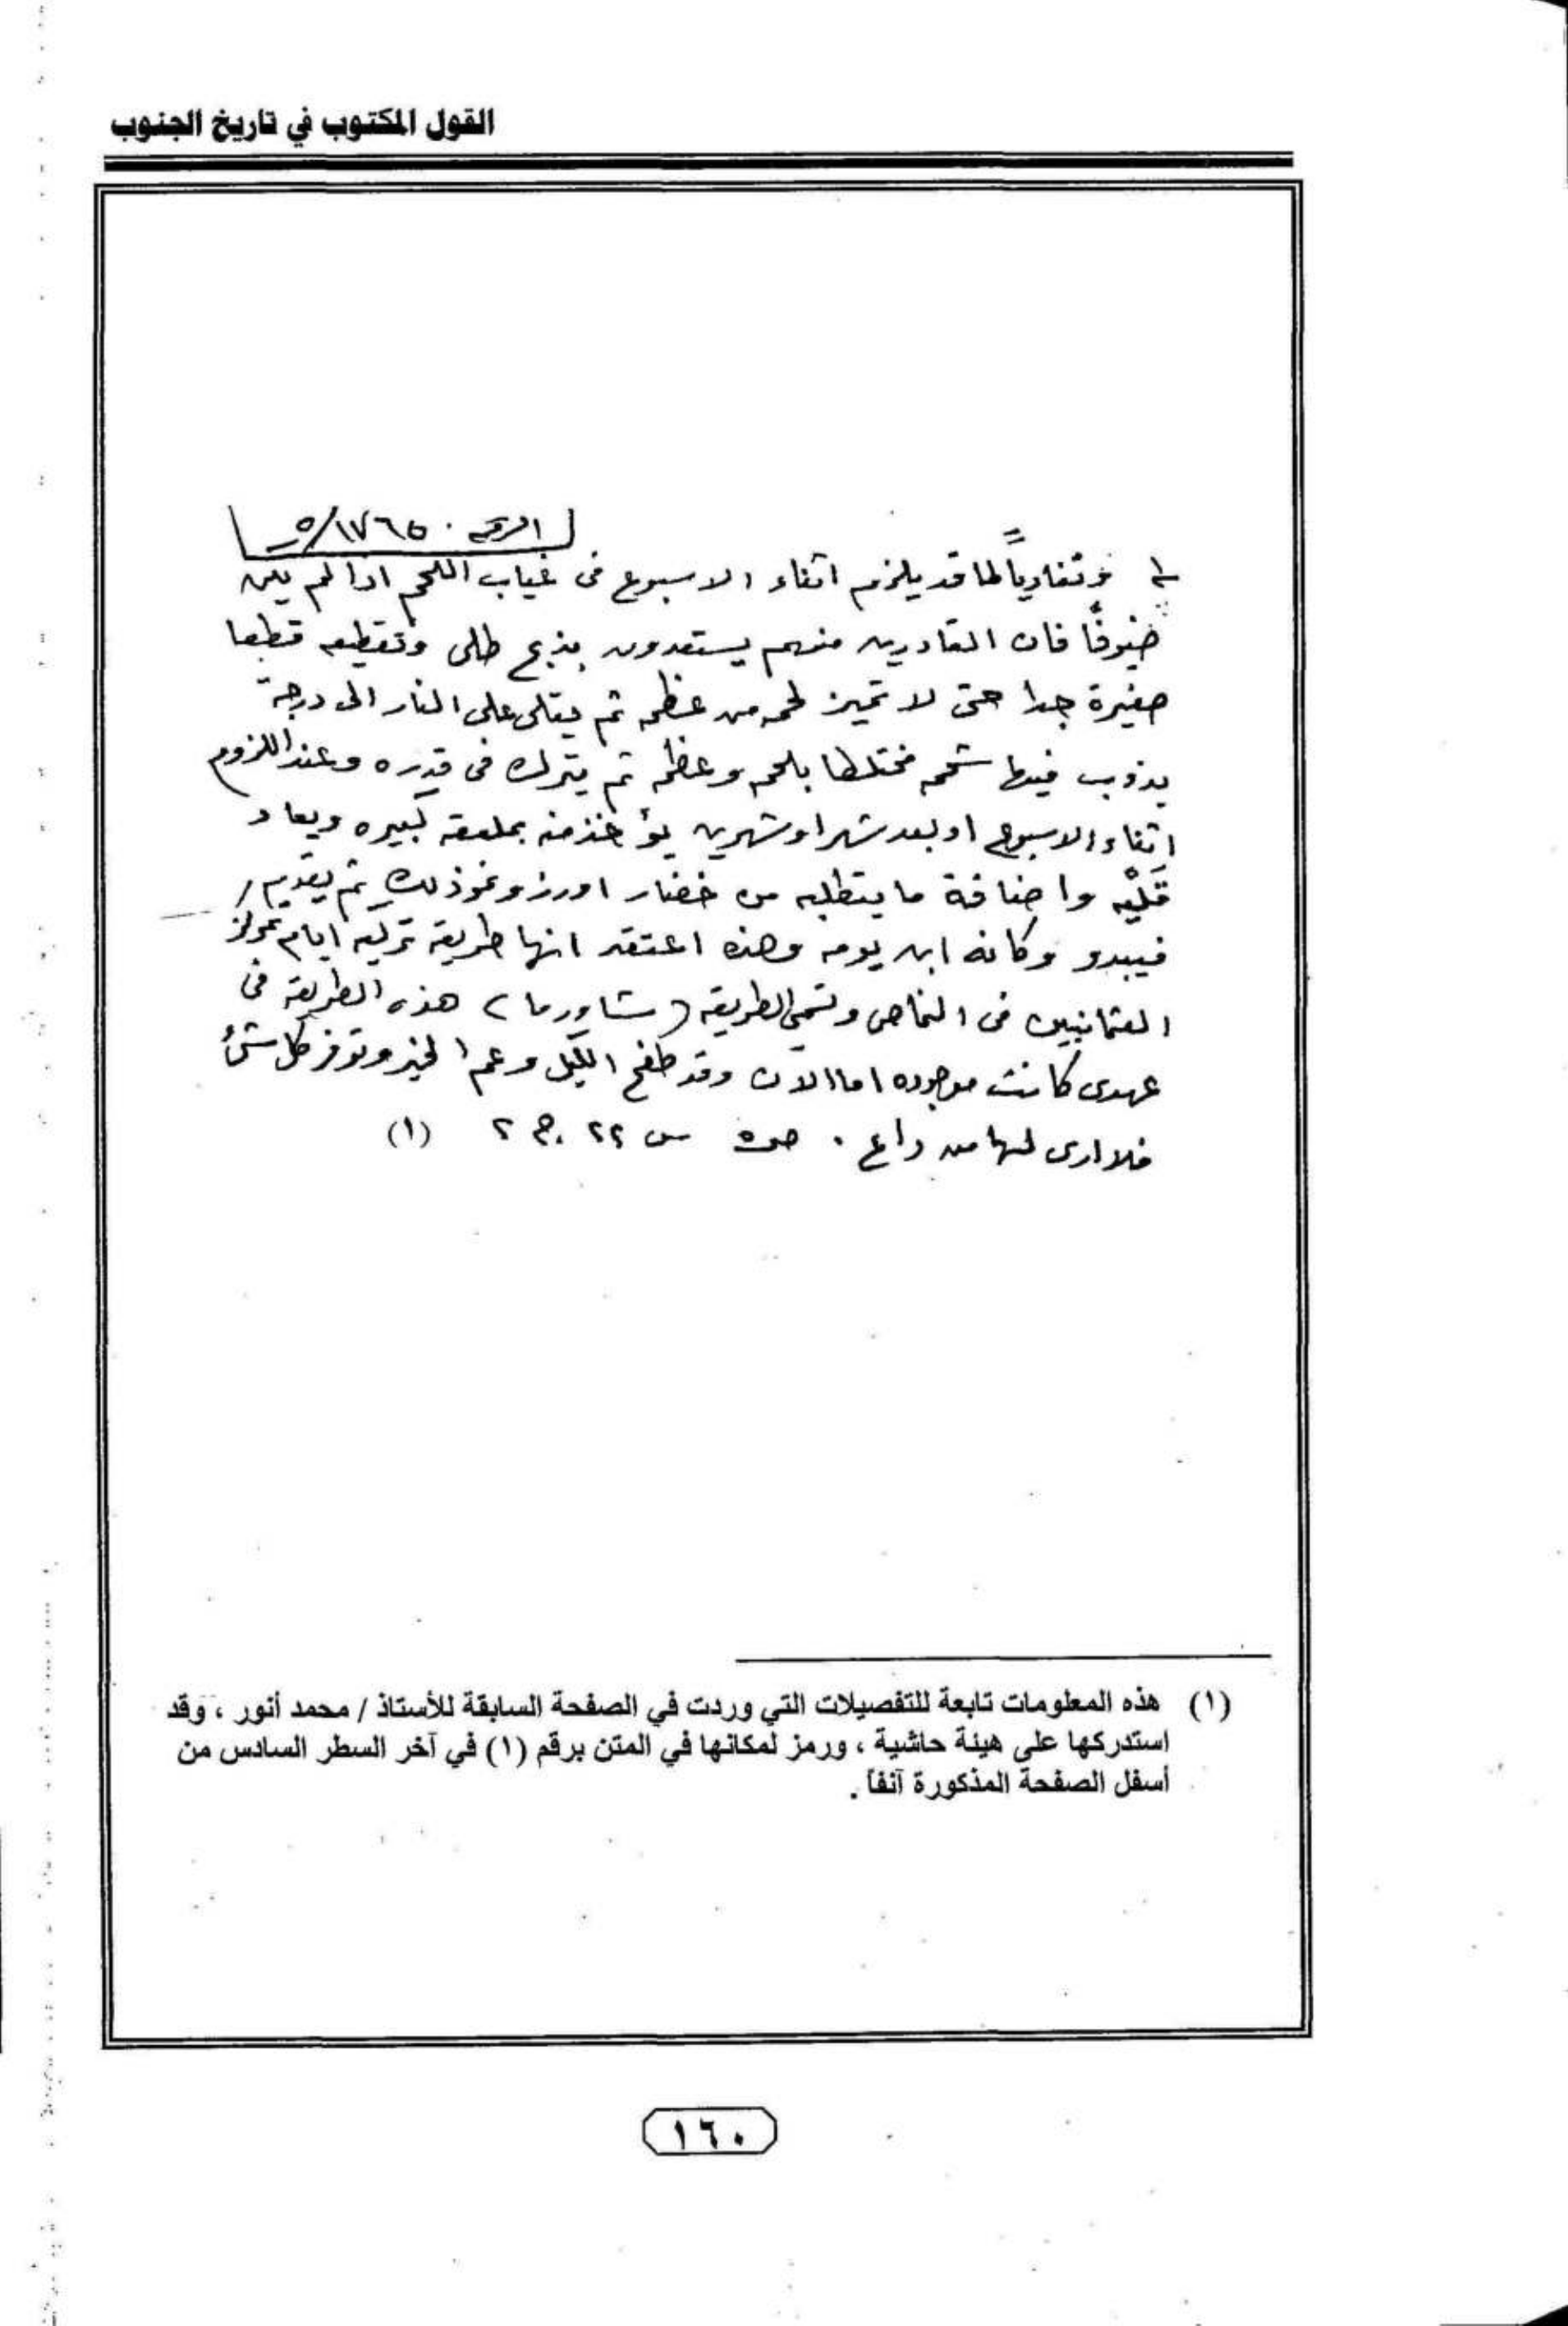 القول المكتوب في تاريخ الجنوب
١٧٦٥/٥
وتفادياً لما قد يلزم اثناء الاسبوع فى غياب اللحم اذا لم يكن
ضيوفًا فان القادرين منهم يستعدون بذبح طلى وتقطيعه قطعا
صغيرة جدا حتى لا تميز لحمه من عظمه ثم يقلى على النار الى درجة
يذوب فيها شحمه مختلطا بلحمه وعظمه ثم يترك فى قدره وعند اللزوم
اثناء الاسبوع او بعد شهر او شهرين يؤخذ منه بملعقه كبيره ويعاد
قَلْيْه واضافة ما يتطلبه من خضار او رز ونحو ذلك ثم يقدم
فيبدو وكانه ابن يومه وهذه اعتقد انها طريقه تركيه ايام تمركز
العثمانيين فى النماص وتسمى الطريقه (شاورما) هذه الطريقه فى
عهدى كانت موجوده اما الان وقد طفح الكيل وعم الخير وتوفر كل شئ
فلا ارى لها من داع . ص٥ س ٢٢ ج ٢ (١)
(١) هذه المعلومات تابعة للتفصيلات التي وردت في الصفحة السابقة للأستاذ / محمد أنور ، وقد
استدركها على هيئة حاشية ، ورمز لمكانها في المتن برقم (١) في آخر السطر السادس من
أسفل الصفحة المذكورة آنفاً .
١٦٠